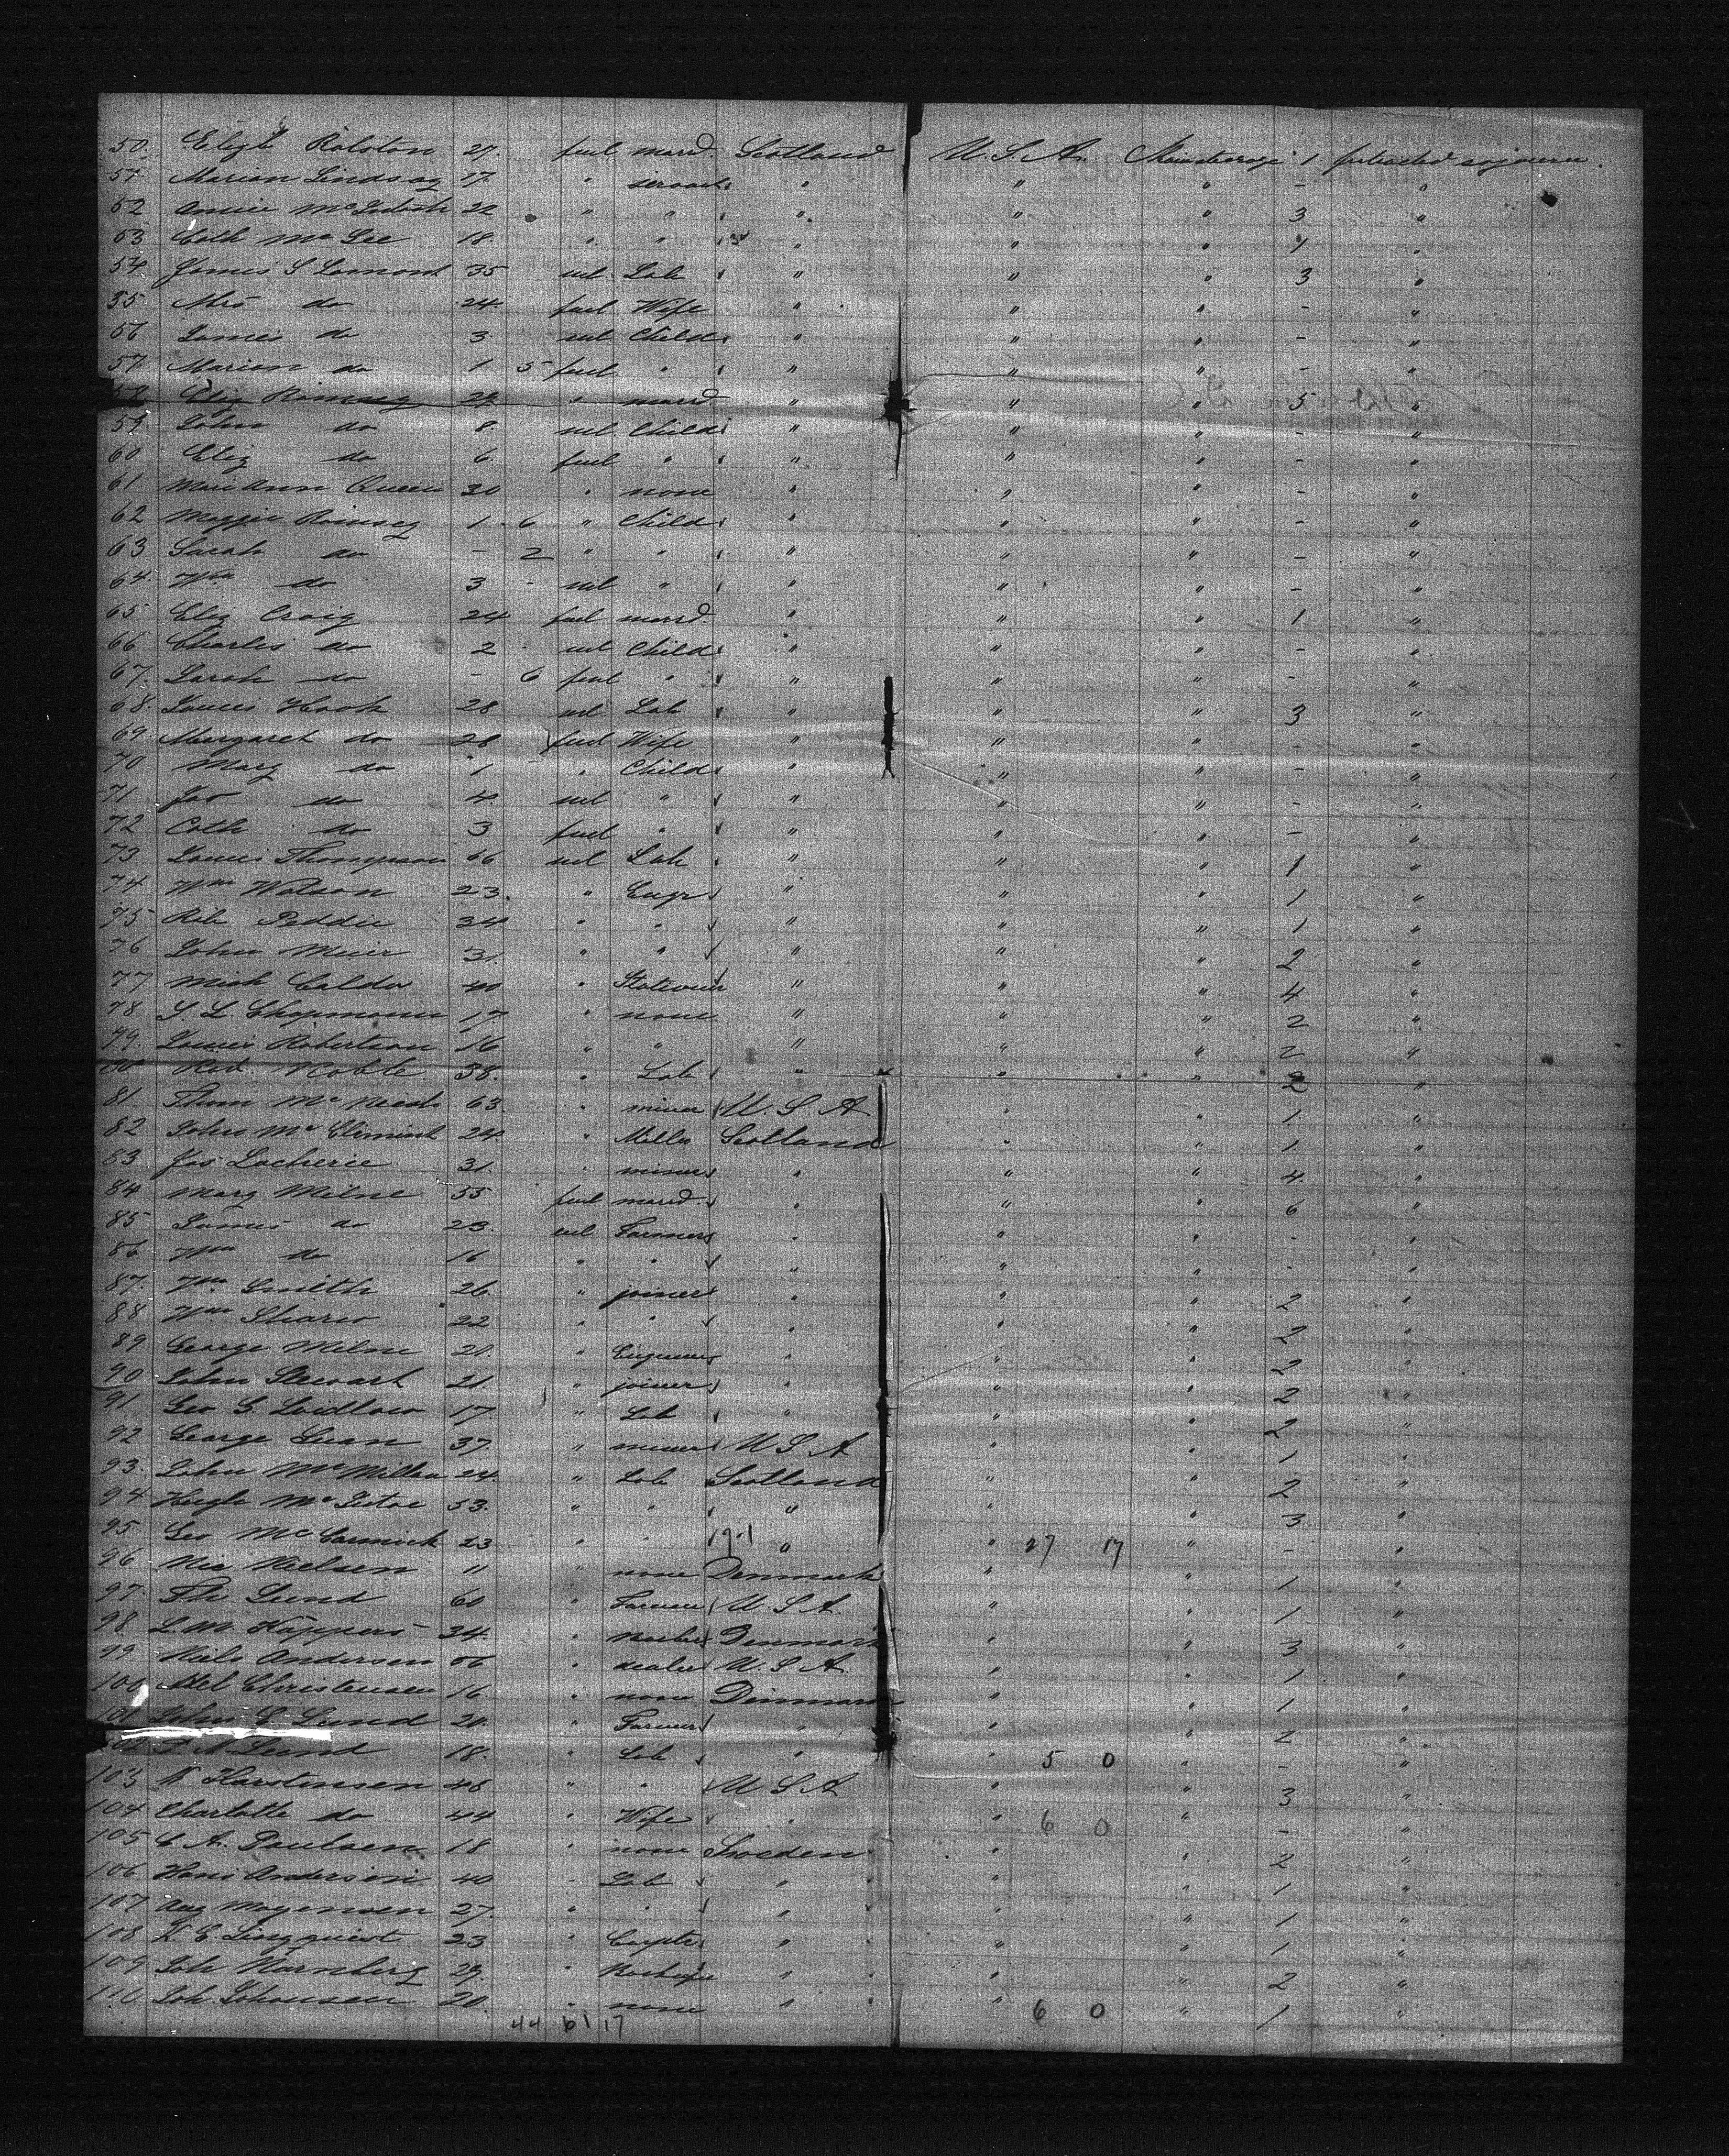 50. Eliz Ralston 27. feml marrd. Scotland U.S.A. 1 protracted sojourn.
51 Marian Lindsay 17. " servant " " " - "
52 Annie McIntosh 22 " " " " " 3 "
53 Cath McGee 18. " " " " " 1 "
54 James S Lamont 35 ml Lab " " " 3 "
55 Mrs do 24. feml Wife " " " - "
56 James do 3. ml Child " " " - "
57. Marian do 1 5 feml " " " " - "
58 Eliz Ramsay 22 " marrd " " " 5 "
59 John do 8. ml Child " " " - "
60 Eliz do 6. feml " " " " - "
61 Mari Ann Queen 30 " none " " " - "
62 Maggie Ramsay 1 6 " Child " " " - "
63 Sarah do - 2 " " " " " - "
64. Wm do 3 - ml " " " " - "
65 Eliz Craig 24 feml marrd. " " " 1 "
66 Charles do 2 - ml Child " " " - "
67. Sarah do - 6 feml " " " " - "
68. James Hook 28 ml Lab " " " 3 "
69. Margaret do 28 feml Wife " " " - "
70 Mary do 1 " Child " " " - "
71 Jas do 4. ml " " " " - "
72 Cath do 3 feml " " " " - "
73 James Thompson 66 ml Lab " " " 1 "
74 Wm Watson 23. " Engr " " " 1 "
75 Rob Peddie 34 " " " " " 1 "
76 John Muir 31. " " " " " 2 "
77 Mich Calder 40 " " " " 4 "
78 S L Chapman 17 " none " " " 2 "
79. James Robertson 16 " " " " " 2 "
80 Noble 38. " Lab " " " 2 "
81 Thom 63 " miner U.S A " " 1. "
82 John McClimint 24. " Miller Scotland " " 1. "
83 Jas Lacherie 31. " miner " " " 4. "
84 Marg Milne 55 feml marrd. " " " 6 "
85 James do 23. ml Farmer " " " - "
86 Wm do 16 " " " " " - "
87. Wm. Smith 26. " joiner " " " 2 "
88 Wm 22 " " " " " 2 "
89 George Milne 21. " Engineer " " " 2 "
90 John Stewart 21. " joiner " " " 2 "
91 Geo G. Laidlaw 17. " Lab " " " 2 "
92 George 37. " miner U S A " " 1 "
93. John McMillan 24. " Lab Scotland " " 2 "
94 Hugh 53. " " " " " 3 "
95 Geo McCormick 23 " " " " 27 17 " - "
96 Nic Nielsen 11 " none Denmark " " 1 "
97. Lund 60 " Farmer U.S.A. " " 1 "
98 L M. Kappers 34. " Denmark " " 3 "
99 Niels Andersen 66 " dealer U.S A " " 1 "
100 Christensen 16. " none Denmark " " 1 "
101 John Lund 20. " Farmer " " " 2 "
102 Lund 18. " Lab " " 5 0 " - "
103 N Karstensen 48 " " U S A " " 3 "
104 Charlotte do 44 " Wife " " 6 0 " - "
105 C A. Paulsen 18 " none Sweden " " 2 "
106 Hans Andersen 40 - Lab " " " 1 "
107 Aug Mogensen 27. " " " " " 1 "
108 Lingquist 23 " Carpter " " " 1 "
109 Joh Harnberg 29. " " " " 2 "
110 Joh. Johansen 20. " none " " 6 0 " 1 "
44 61 17